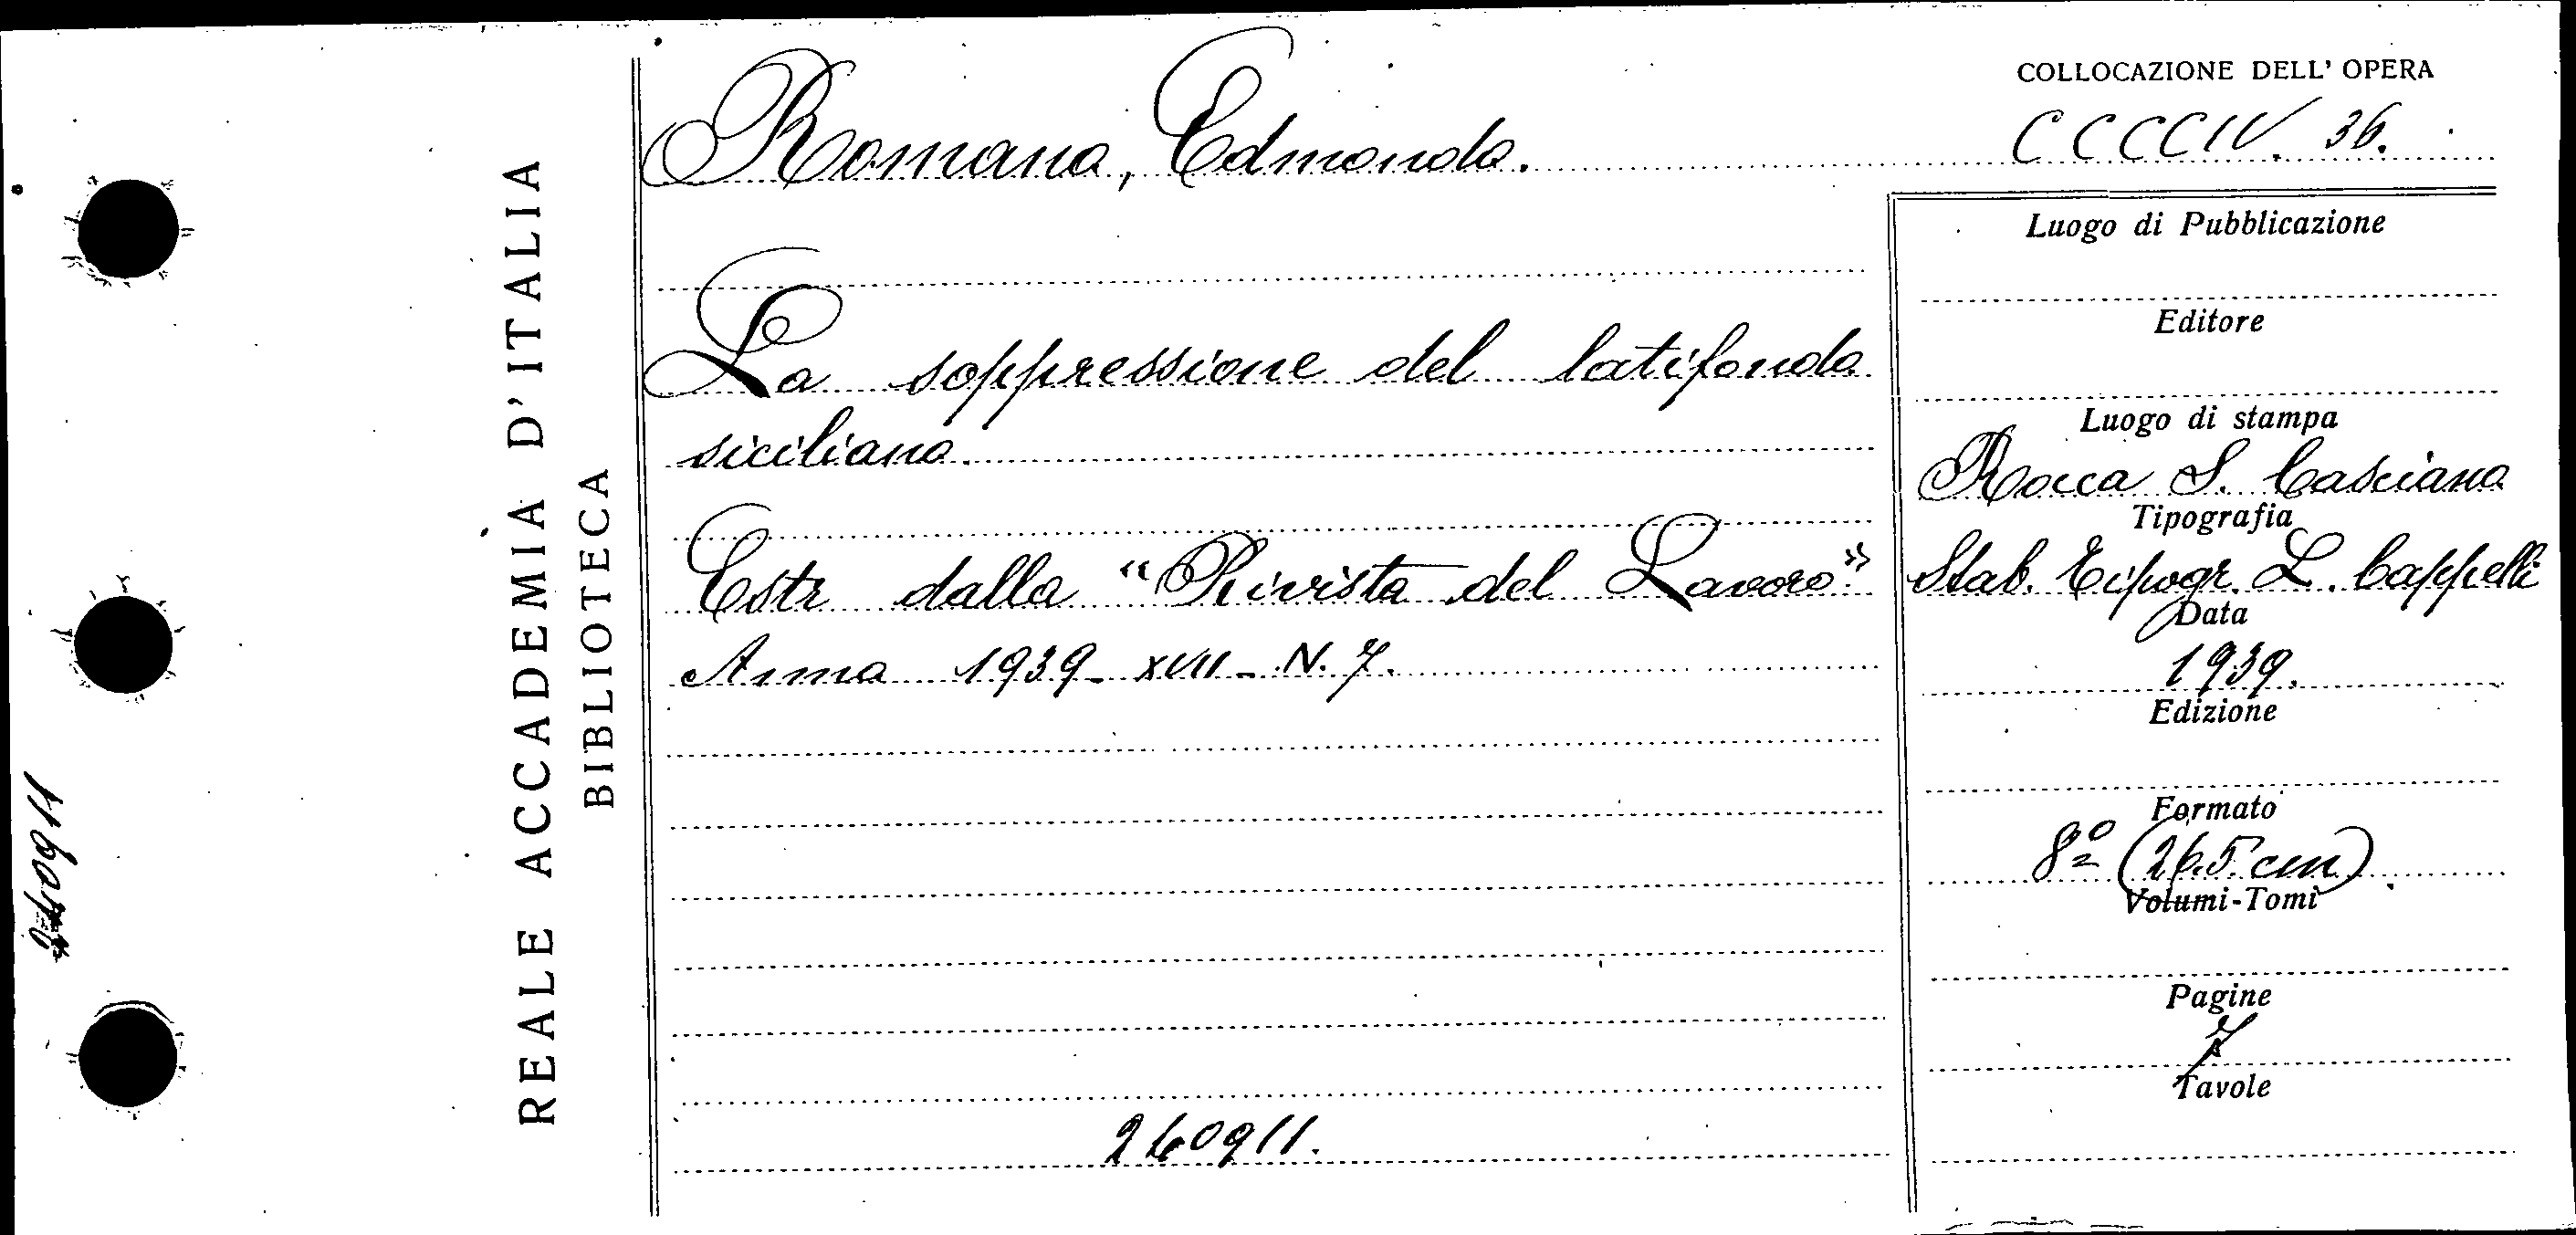 COLLOCAZIONE DELL' OPERA
CCCCIV. 36.
Romano, Edmondo.
La soppressione del latifondo
siciliano.
Estr dalla "Rivista del Lavoro".
Anno 1939 - XVII - N. 7.
260911.
Luogo di Pubblicazione
Editore
Luogo di stampa
Rocca S. Casciano
Tipografia
Stab. Tipogr. L. Cappelli
Data
1939.
Edizione
Formato
8º (26.5 cm).
Volumi-Tomi
Pagine
7
Tavole
REALE ACCADEMIA D'ITALIA
BIBLIOTECA